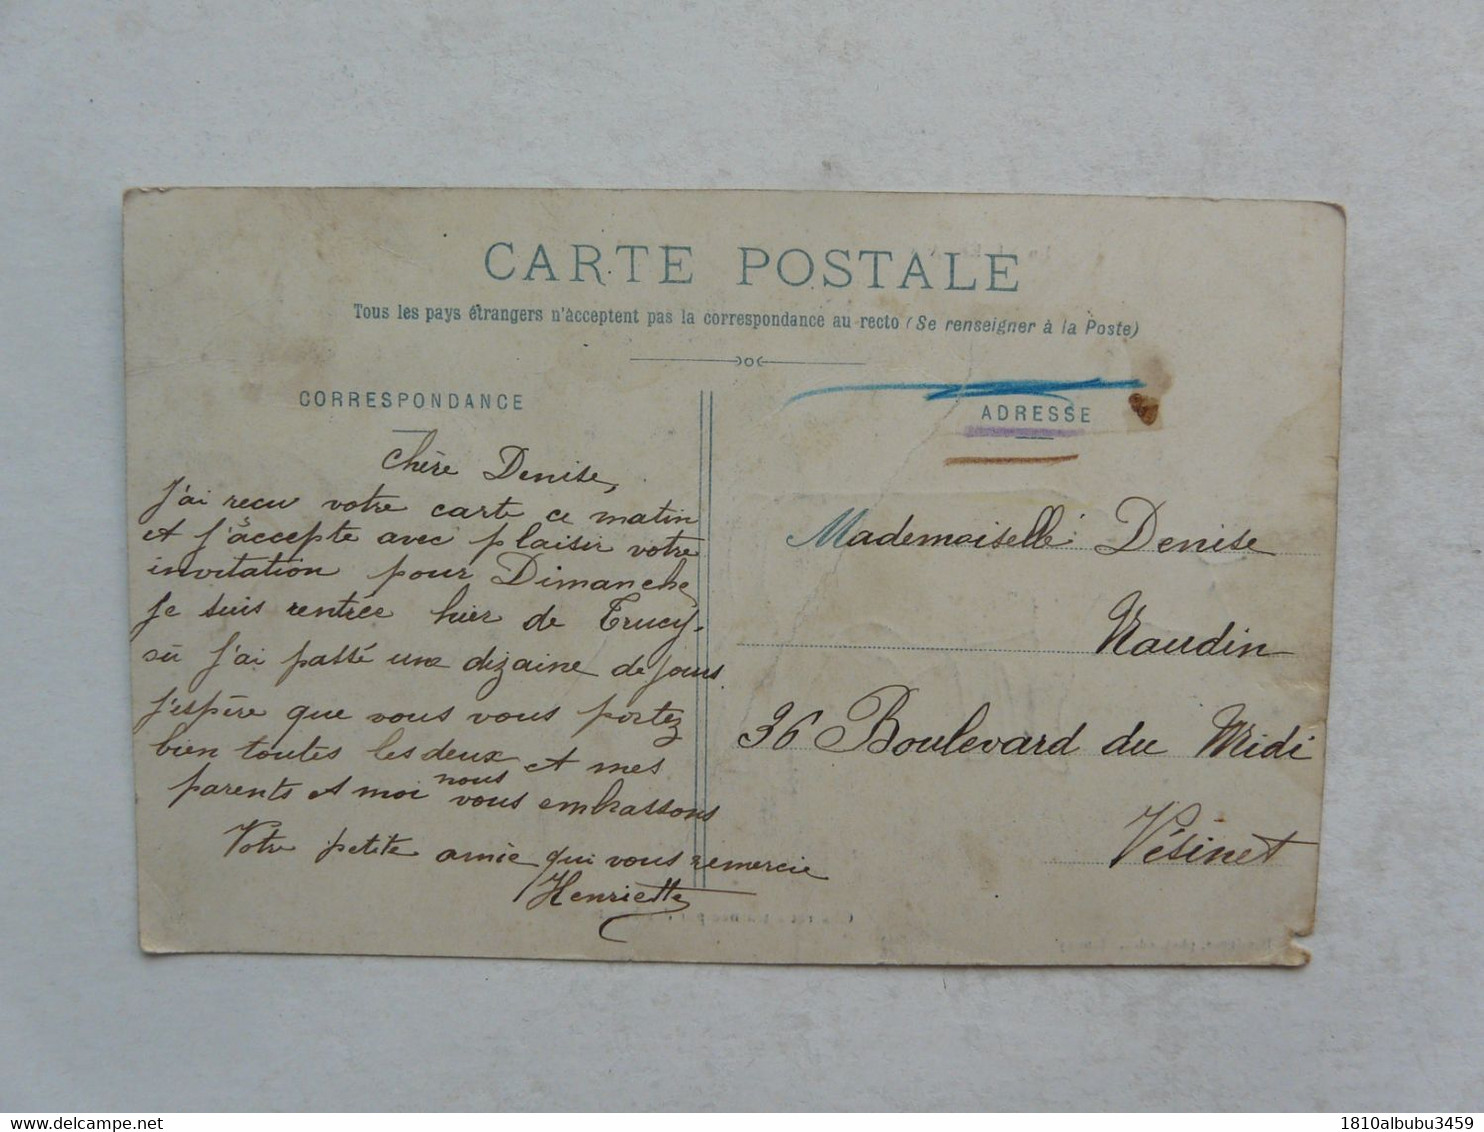 CARTE POSTALE
Tous les pays étrangers n'acceptent pas la correspondance au recto (Se renseigner à la Poste)
CORRESPONDANCE
Chère Denise,
J'ai reçu votre carte ce matin
et j'accepte avec plaisir votre
invitation pour Dimanche
Je suis rentrée hier de Crucy.
où j'ai passé une dizaine de jours.
J'espère que vous vous portez
bien toutes les deux et mes
parents et moi nous vous embrassons
Votre petite amie qui vous remercie
Henriette
ADRESSE
Mademoiselle Denise
Naudin
36 Boulevard du Midi
Vésinet
1810albubu3459